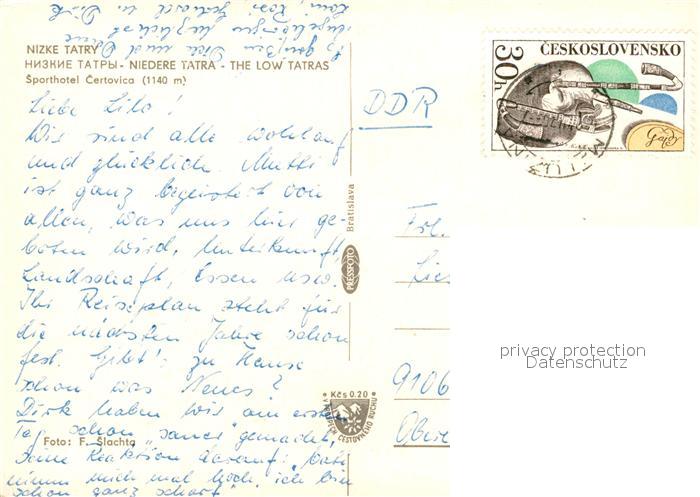 NÍZKE TATRY
НИЗКИЕ ТАТРЫ - NIEDERE TATRA - THE LOW TATRAS
Športhotel Čertovica (1140 m)
Liebe Lilo!
Wir sind alle wohlauf
und glücklich. Mutti
ist ganz begeistert von
allem, was uns hier ge-
boten wird, Unterkunft,
Landschaft, Essen usw.
Ihr Reiseplan steht für
die nächsten Jahre schon
fest. Gibt's zu Hause
schon was Neues?
Dirk haben wir am ersten
Tag schon "sauer" gemacht,
seine Reaktion darauf: "Vati
nimm mich mal hoch, ich bin
schon ganz scharf"
Es grüßen Dich und
herzlichst
Dirk
Foto: F. Šlachta
Bratislava
PRESSFOTO
Kčs 0.20
DDR
ČESKOSLOVENSKO
30h
Gajdy
Frl.
Lies
9106
Ober
privacy protection
Datenschutz